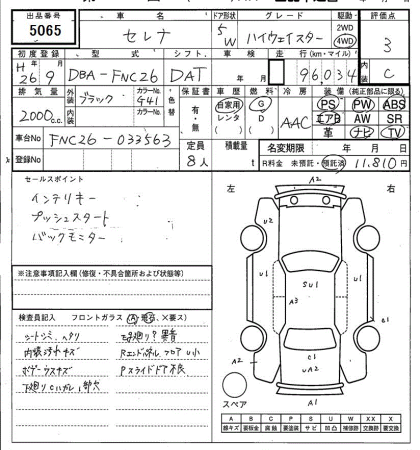 出品番号 車名 ドア形状 グレード 駆動 評価点
5065 セレナ 5W ハイウェイスター 2WD 4WD 3
初度登録 型式 シフト 車検 走行(km・マイル) 内装
H26 9 DBA-FNC26 DAT 年 月 96,034 C
排気量 外装 ブラック カラーNo. G41 色替 保証書 車歴 燃料 冷房 装備(純正部品に限る)
2000c.c. 内装 カラーNo. 有・無 自家用 レンタ G D AAC PS PW ABS
エアB AW SR
革 ナビ TV
車台No FNC26-033563 定員 積載量 名変期限 年 月 日
登録No 8人 t R料金 未預託・預託済 11,810円
セールスポイント
インテリキー
プッシュスタート
バックモニター
左 右
A2
U2
U1 SU1 U1
A3
B1
C1
A2 UA2
スペア A1
※注意事項記入欄(修復・不具合箇所および状態等)
検査員記入 フロントガラス(A,飛石,×要ス)
シートシミ、ヘタリ
内張汚れキズ Rエンドパネル フロア U小
ボデーウスキズ Pスライドドア不良
A B C P S U W X XX
線キズ 要板金 腐蝕 要塗装 サビ 凹凸 補修跡 要交換 交換済